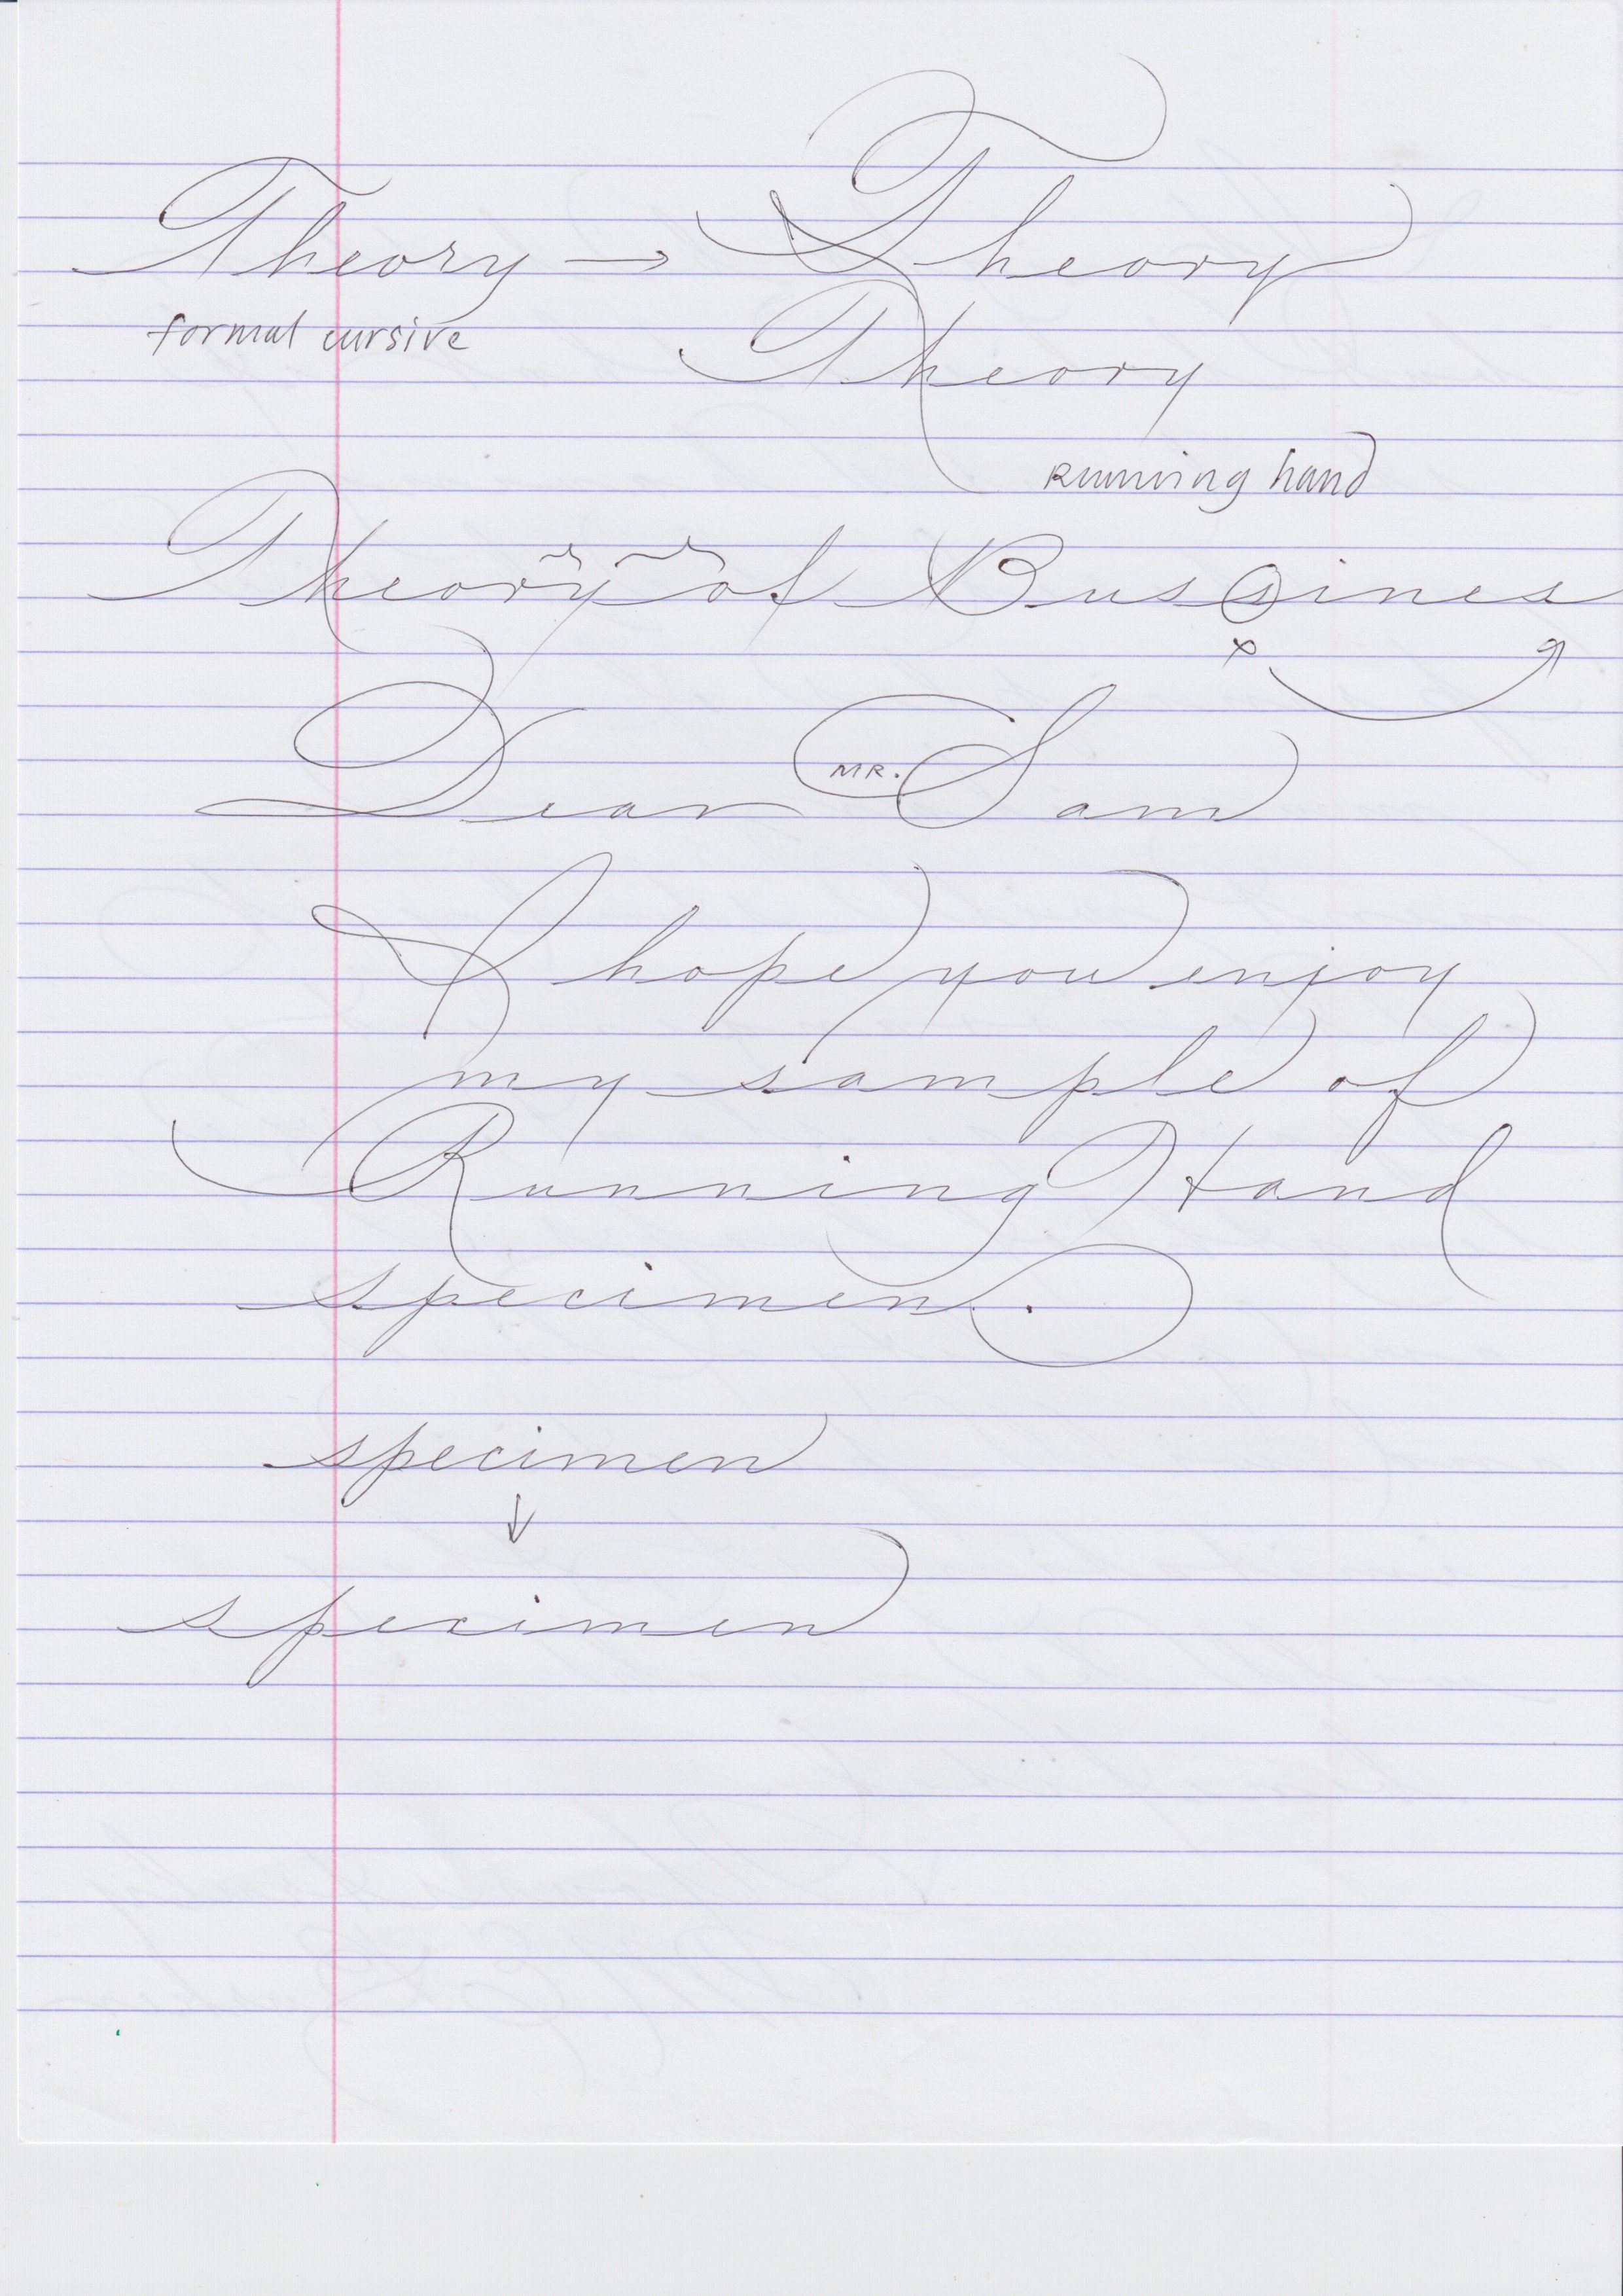 Theory → Theory
formal cursive
Theory
Running hand
Theory of Bussines
x
Dear Mr. Sam
I hope you enjoy
my sample of
Running Hand
specimen.
specimen
↓
specimen